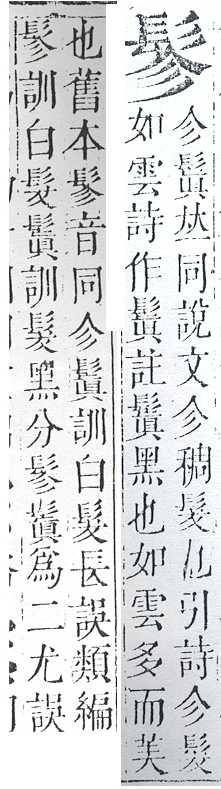 𩬖
㐱鬒𠀤同說文㐱稠髮也引詩㐱髮
如雲詩作鬒註鬒黑也如雲多而美
也舊本𩬖音同㐱鬒訓白髮長誤類編
𩬖訓白髮鬒訓髮黑分𩬖鬒爲二尤誤